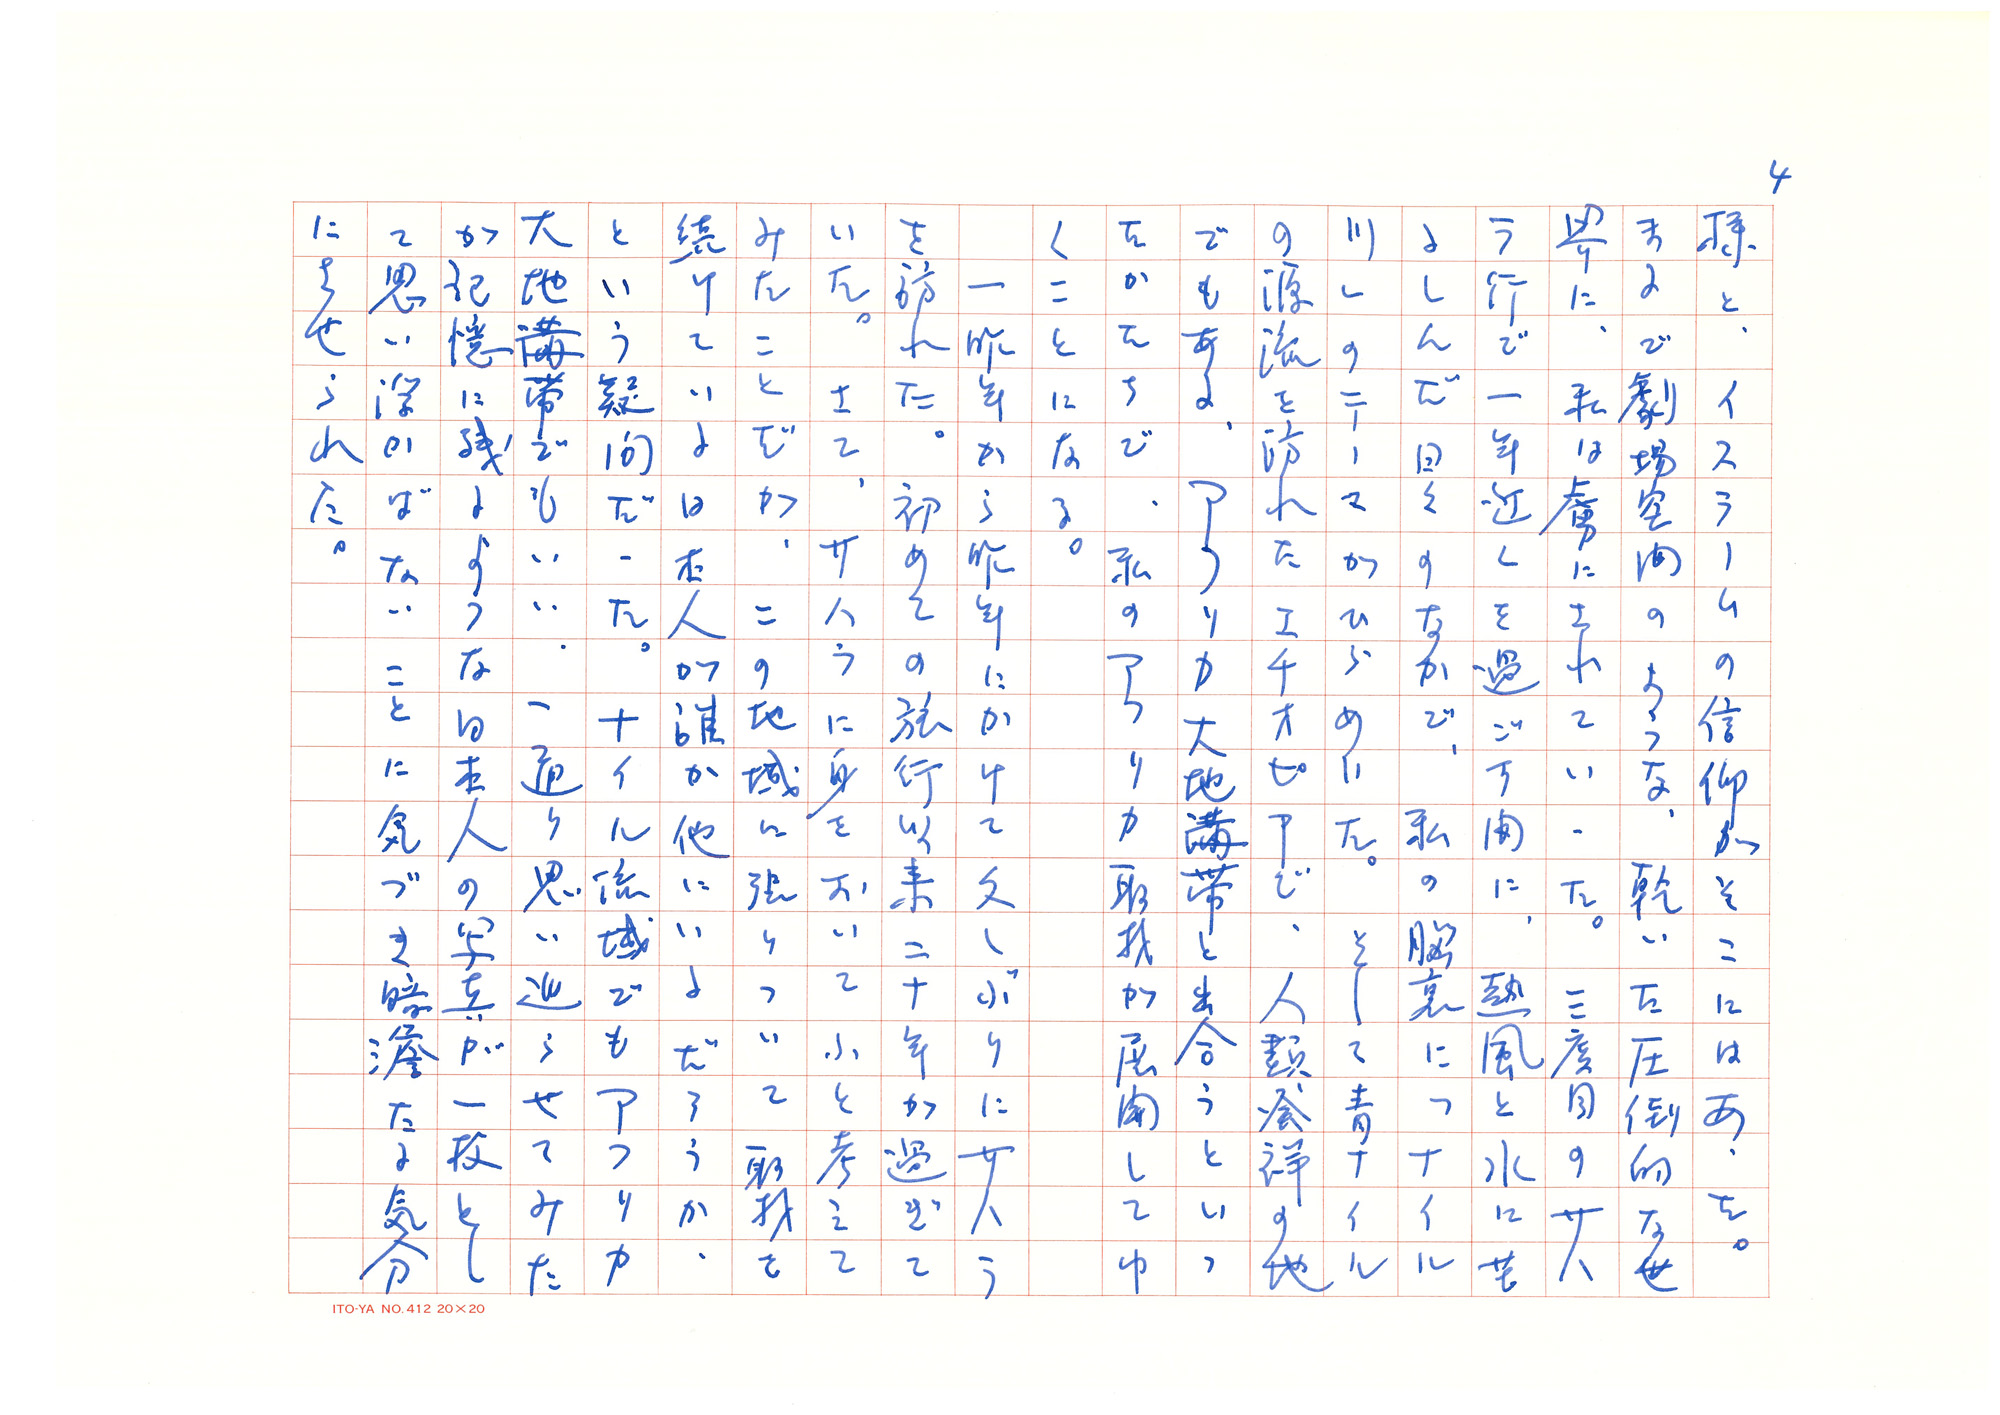 4
様と、イスラームの信仰がそこにはあった。
まるで劇場空間のような、乾いた圧倒的なせ
界に、私は虜にされていった。三度目のサハ
ラ行で一年近くを過ごす間に、熱風と水に苦
よしんだ日々のなかで、私の脳裏にナイル
川しのテーマがひらめいた。そして青ナイル
の源流を訪れたエチオピアで、人類発祥の地
でもある、アフリカ大地溝帯と出合うといっ
たかたちで、私のアフリカ取材が展開してゆ
くことになる。
一昨年から昨年にかけて久しぶりにサハラ
を訪れた。初めての旅行以来二十年が過ぎて
いた。さて、サハラに身をおいてふと考えて
みたことだが、この地域に張りついて取材を
続けている日本人が誰か他にいるだろうか、
という疑問だった。ナイル流域でもアフリカ
大地溝帯でもいい、一通り思い巡らせてみた
が記憶に残るような日本人の写真が一枚とし
て思い浮かばないことに気づき暗澹たる気分
にさせられた。
ITO-YA NO.412 20×20